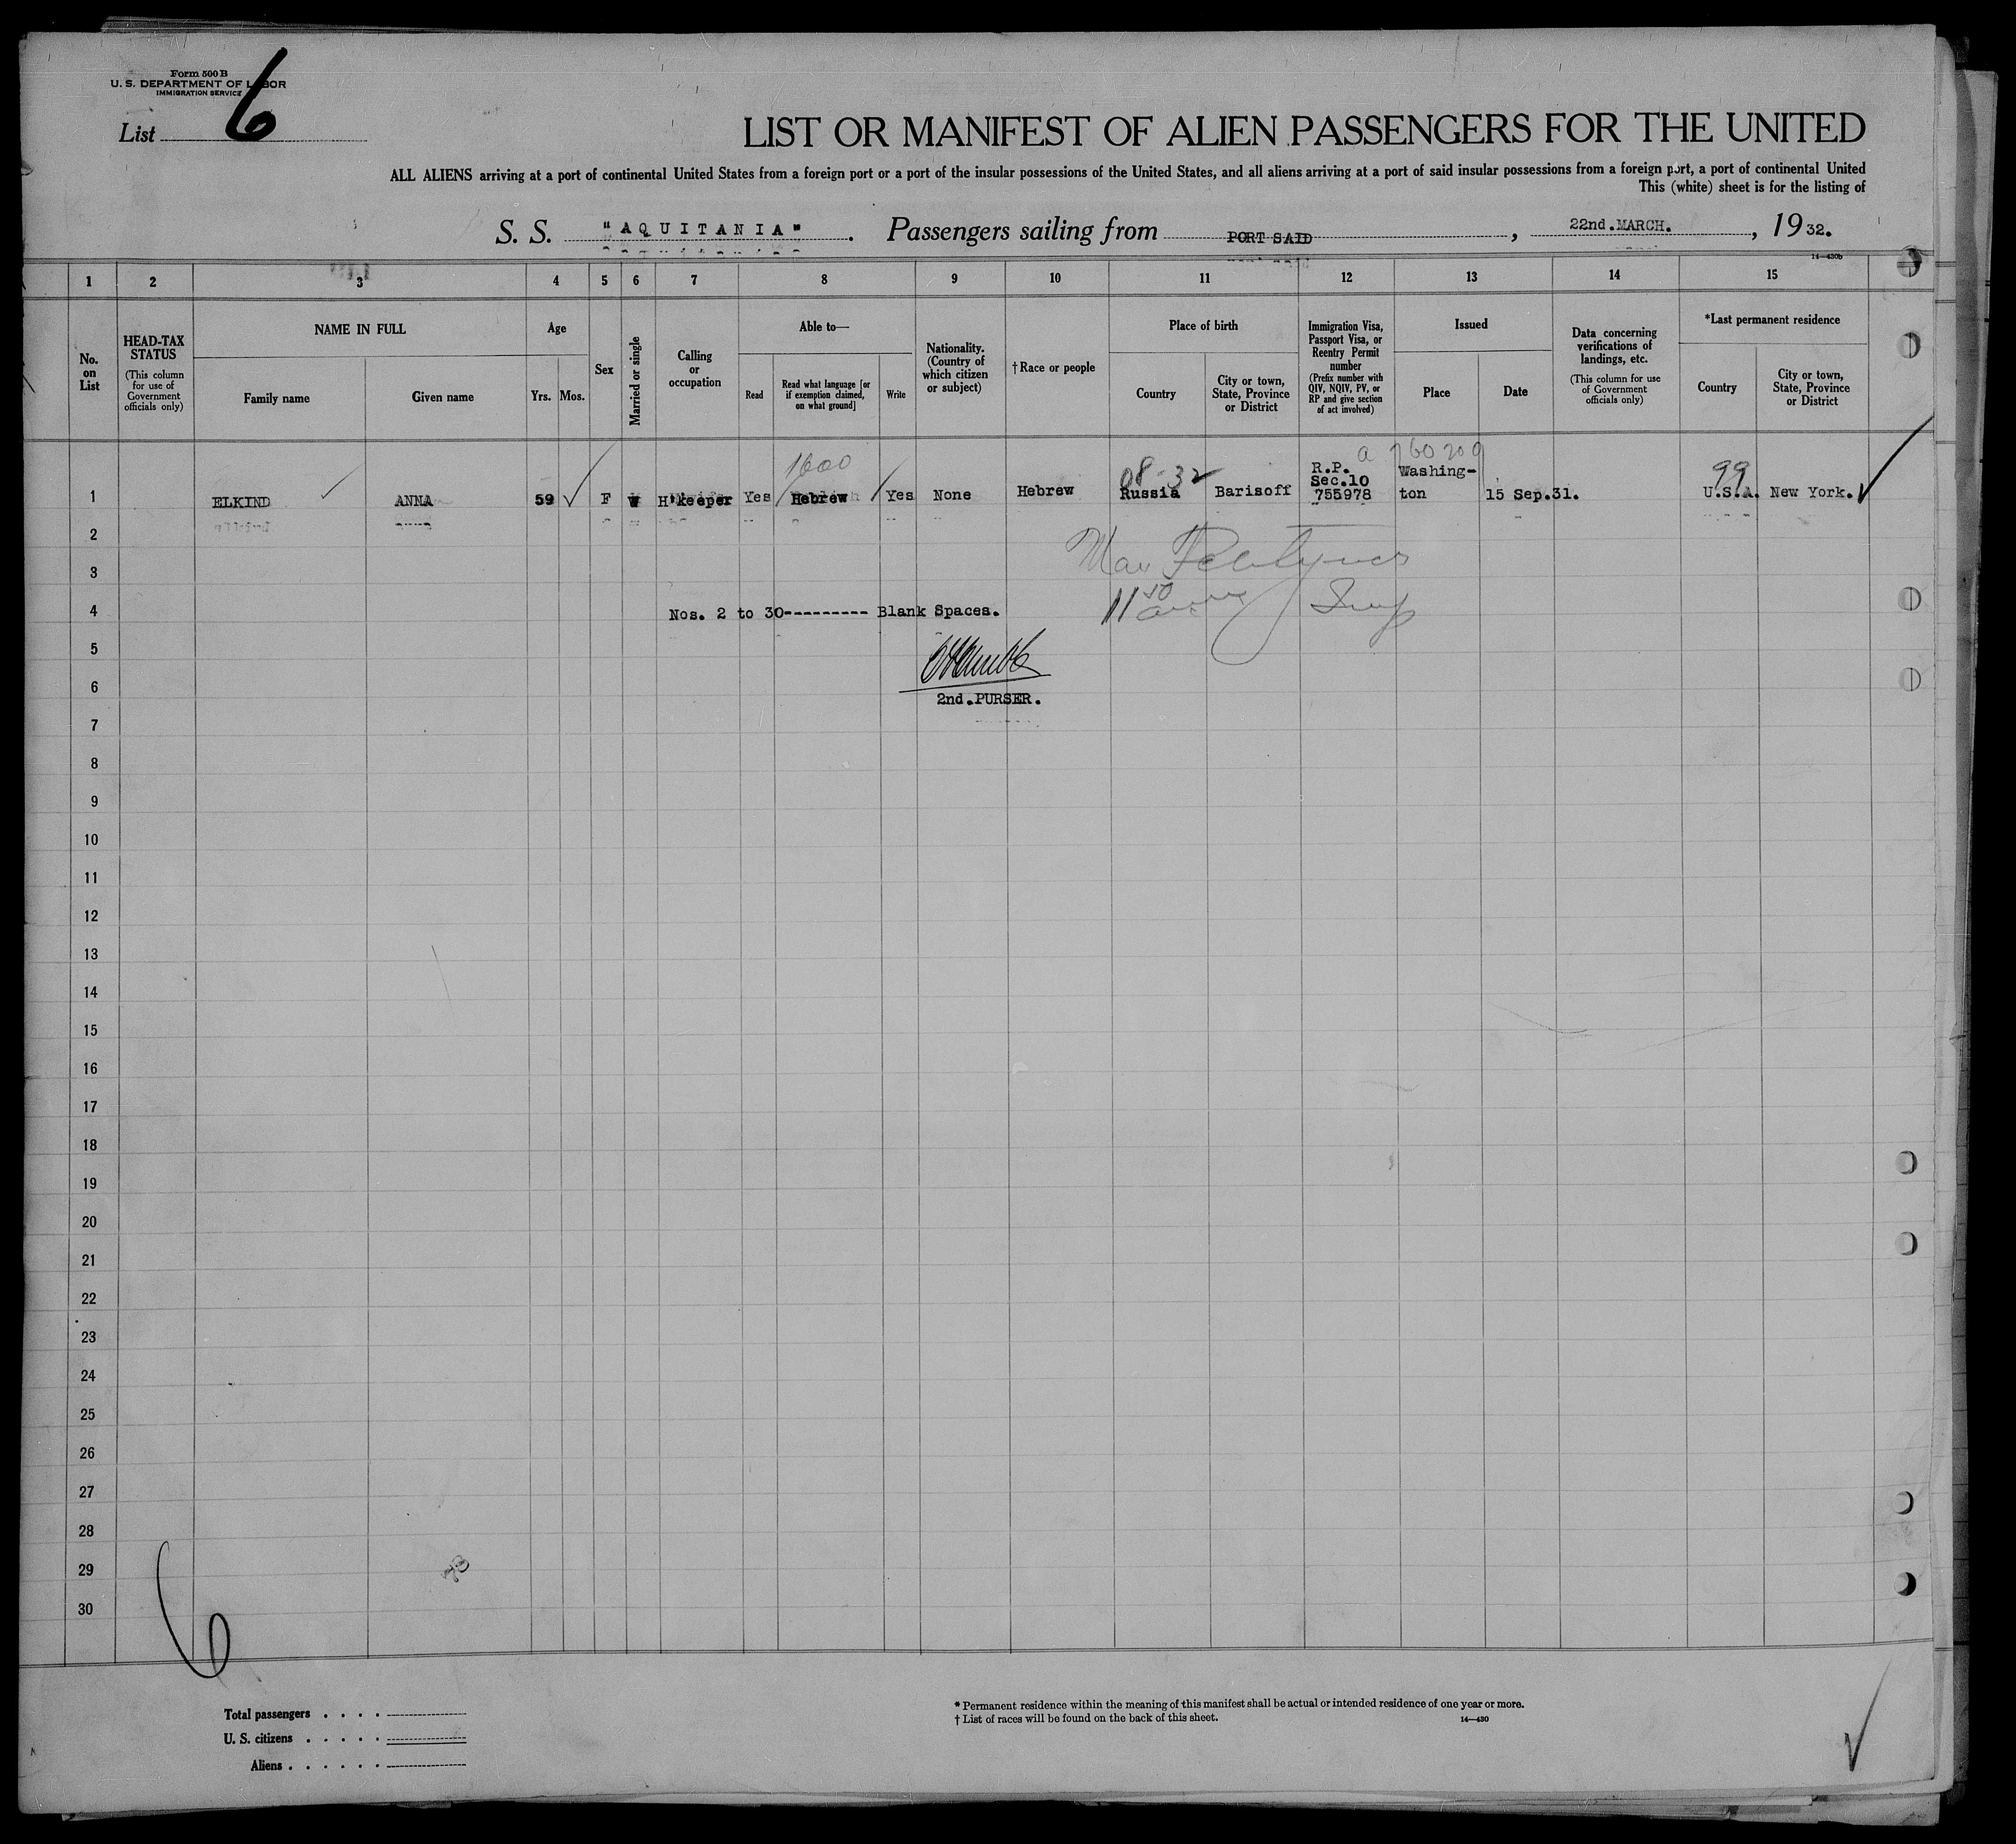 Form 500 B
U. S. DEPARTMENT OF LABOR
IMMIGRATION SERVICE
List 6
LIST OR MANIFEST OF ALIEN PASSENGERS FOR THE UNITED
ALL ALIENS arriving at a port of continental United States from a foreign port or a port of the insular possessions of the United States, and all aliens arriving at a port of said insular possessions from a foreign port, a port of continental United
This (white) sheet is for the listing of
S. S. "AQUITANIA". Passengers sailing from PORT SAID, 22nd.MARCH., 1932.
14—430b
1 2 3 4 5 6 7 8 9 10 11 12 13 14 15
No. on List
HEAD-TAX STATUS
(This column for use of Government officials only)
NAME IN FULL
Family name
Given name
Age
Yrs.
Mos.
Sex
Married or single
Calling or occupation
Able to—
Read
Read what language [or if exemption claimed, on what ground]
Write
Nationality. (Country of which citizen or subject)
†Race or people
Place of birth
Country
City or town, State, Province or District
Immigration Visa, Passport Visa, or Reentry Permit number
(Prefix number with QIV, NQIV, PV, or RP and give section of act involved)
Issued
Place
Date
Data concerning verifications of landings, etc.
(This column for use of Government officials only)
*Last permanent residence
Country
City or town, State, Province or District
1600 08-32 a 760209 99
1 ELKIND ANNA 59 F W H'keeper Yes Hebrew Yes None Hebrew Russia Barisoff R.P. Sec.10 755978 Washington 15 Sep.31. U.S.A. New York.
2
3
4 Nos. 2 to 30--------- Blank Spaces. 11 50
5
6
2nd.PURSER.
7
8
9
10
11
12
13
14
15
16
17
18
19
20
21
22
23
24
25
26
27
28
29
30
6
Total passengers . . . .
U. S. citizens . . . . .
Aliens . . . . . .
* Permanent residence within the meaning of this manifest shall be actual or intended residence of one year or more.
† List of races will be found on the back of this sheet.
14—430